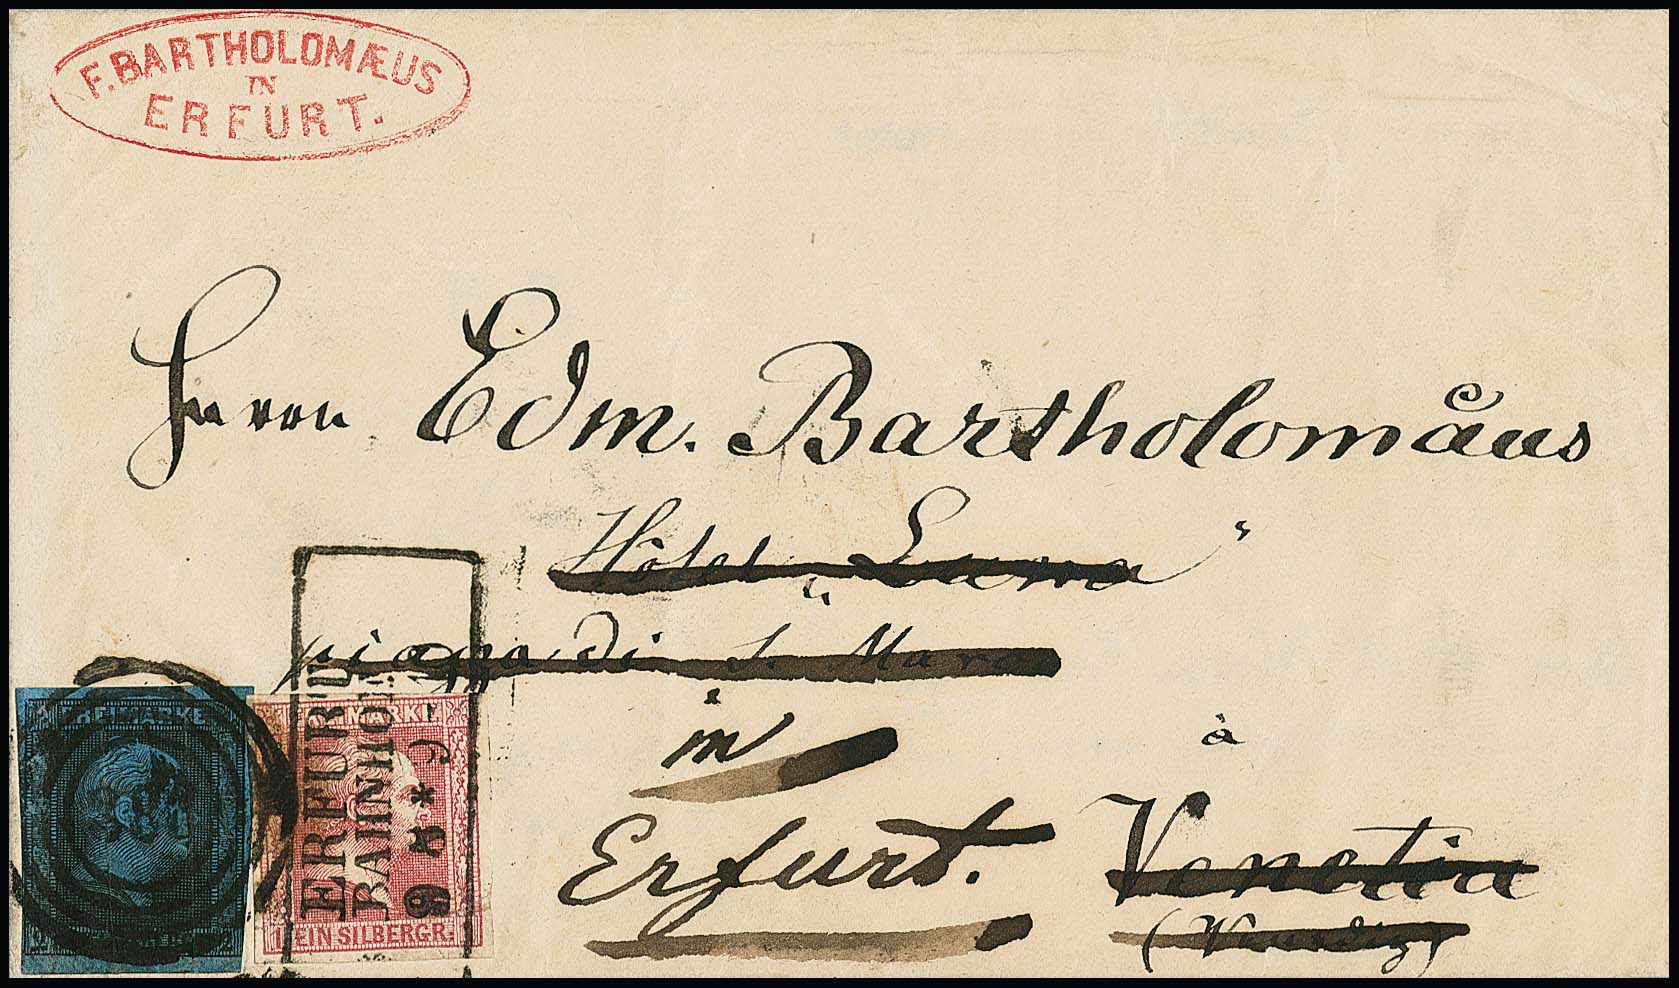 F. BARTHOLOMÆUS
IN
ERFURT.
Herrn Edm. Bartholomäus
Hôtel „Luna“
piazza di S. Marco
in
à
Erfurt. Venetia
(Venedig)
FREIMARKE
FREIMARKE
1 EIN SILBERGR.
ERFURT
BAHNHOF